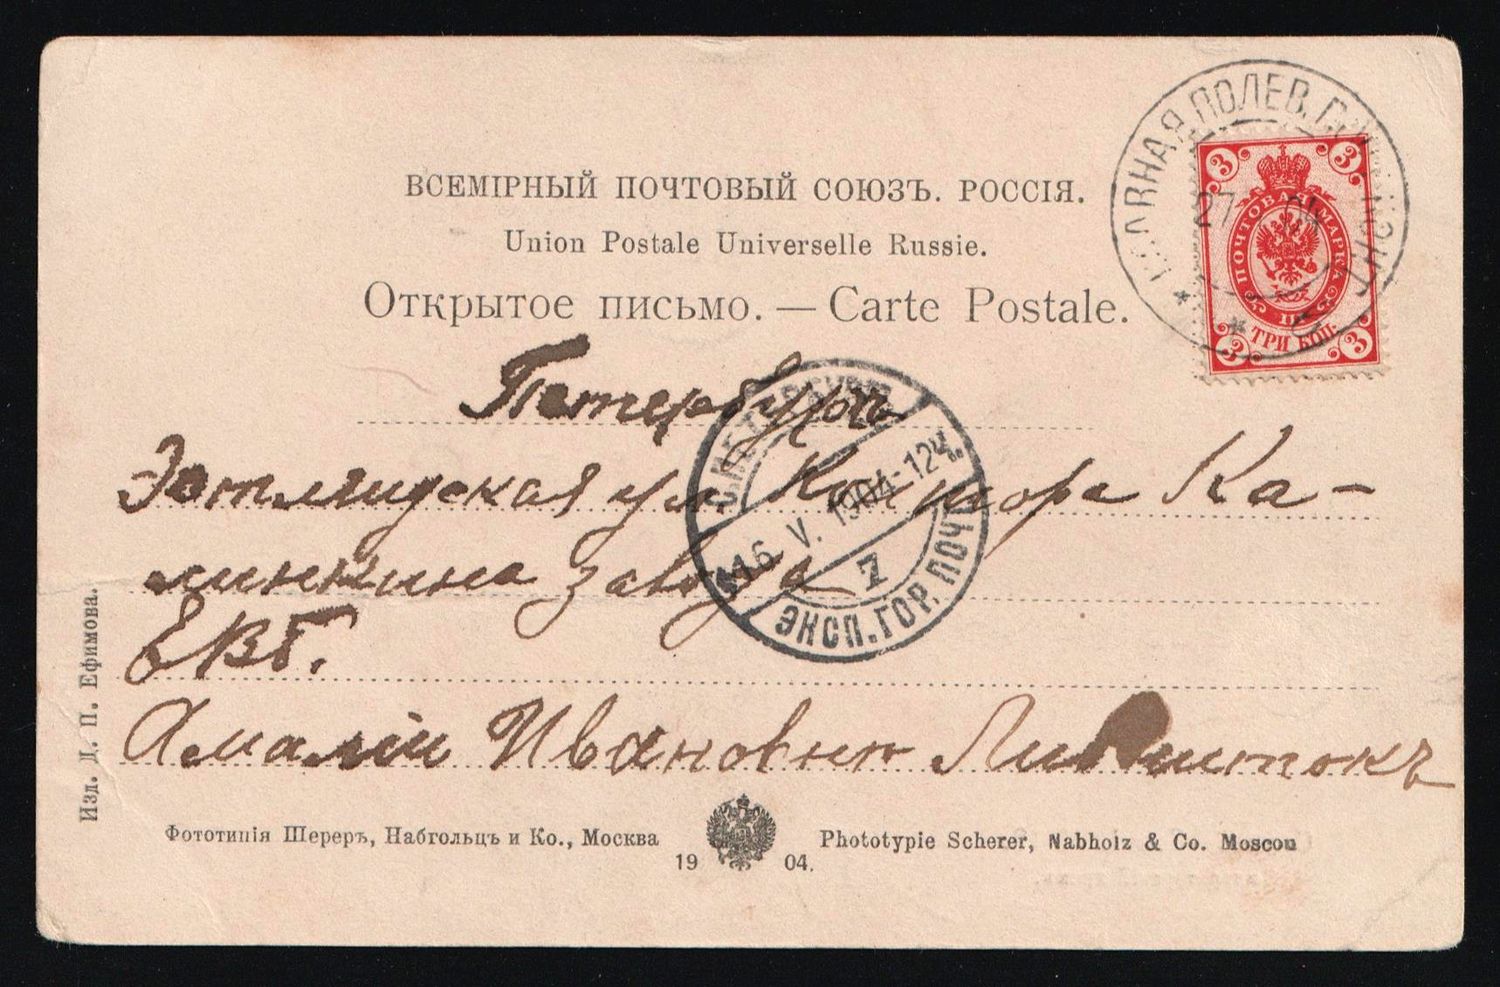 ВСЕМІРНЫЙ ПОЧТОВЫЙ СОЮЗЪ. РОССІЯ.
Union Postale Universelle Russie.
Открытое письмо. — Carte Postale.
ГЛАВНАЯ ПОЛЕВ. П.
27
3 3
ПОЧТОВАЯ МАРКА
3 3
ТРИ КОП.
Петербургъ
С.ПЕТЕРБУРГЪ
16 V. 1904-12Ч.
7
ЭКСП. ГОР. ПОЧТ
Эстляндская ул Контора Ка-
линкина завода
ЕВБ.
Амаліи Ивановнѣ
Изд. Д. П. Ефимова.
Фототипія Шереръ, Набгольцъ и Ко., Москва
1904.
Phototypie Scherer, Nabholz & Co. Moscou